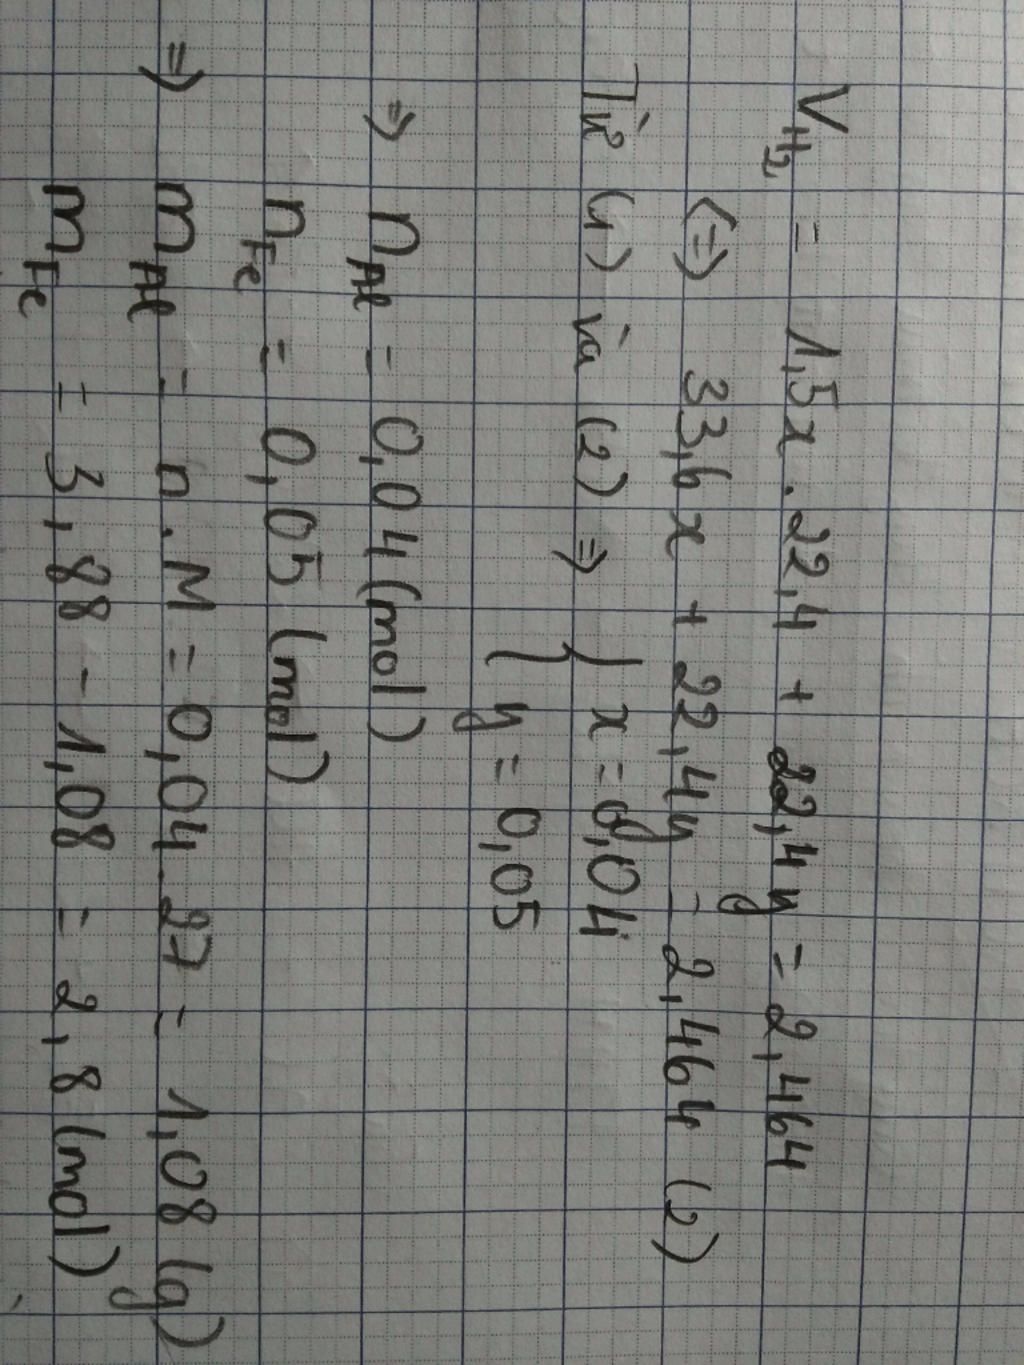 V_H₂ = 1,5x . 22,4 + 22,4y = 2,464
(=) 33,6x + 22,4y = 2,464 (2)
Từ (1) và (2) ⇒ { x = 0,04
{ y = 0,05
⇒ n_Al = 0,04 (mol)
n_Fe = 0,05 (mol)
⇒ m_Al = n . M = 0,04 . 27 = 1,08 (g)
m_Fe = 3,88 - 1,08 = 2,8 (mol)